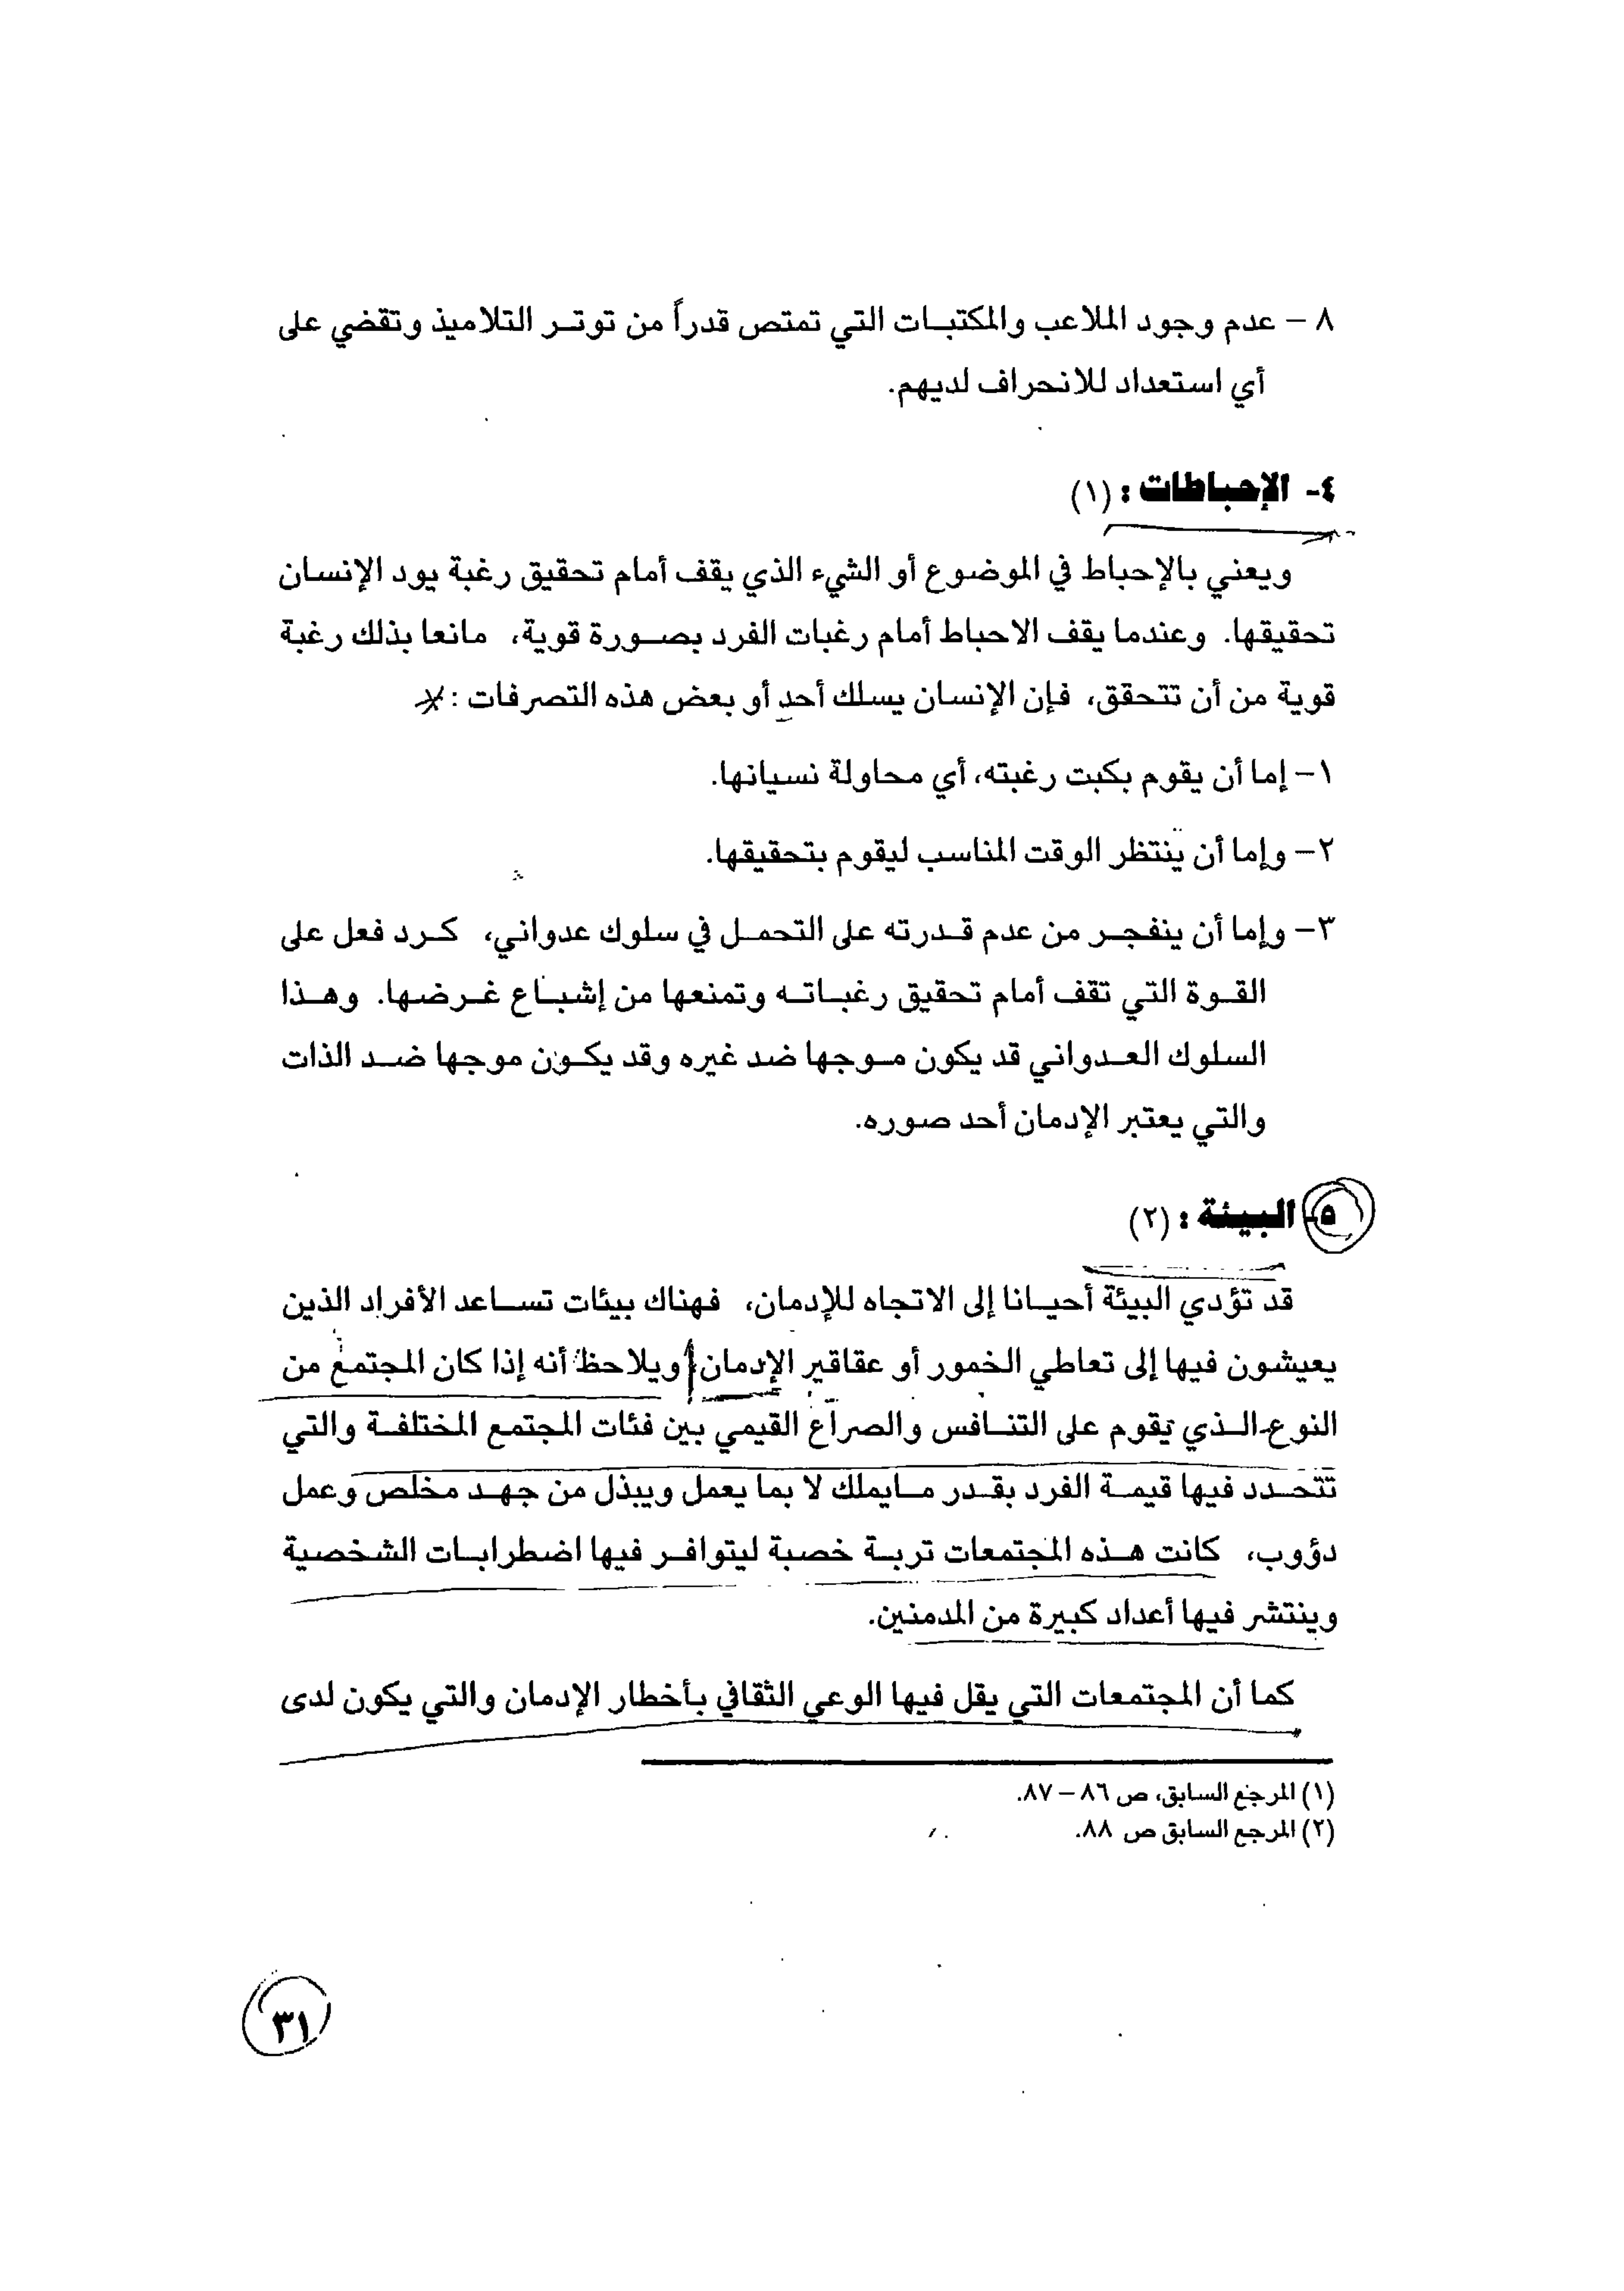 ٨ – عدم وجود الملاعب والمكتبات التي تمتص قدراً من توتر التلاميذ وتقضي على
أي استعداد للانحراف لديهم.
٤- الإحباطات : (١)
ويعني بالإحباط في الموضوع أو الشيء الذي يقف أمام تحقيق رغبة يود الإنسان
تحقيقها. وعندما يقف الاحباط أمام رغبات الفرد بصورة قوية، مانعا بذلك رغبة
قوية من أن تتحقق، فإن الإنسان يسلك أحد أو بعض هذه التصرفات :
١– إما أن يقوم بكبت رغبته، أي محاولة نسيانها.
٢– وإما أن ينتظر الوقت المناسب ليقوم بتحقيقها.
٣– وإما أن ينفجر من عدم قدرته على التحمل في سلوك عدواني، كرد فعل على
القوة التي تقف أمام تحقيق رغباته وتمنعها من إشباع غرضها. وهذا
السلوك العدواني قد يكون موجها ضد غيره وقد يكون موجها ضد الذات
والتي يعتبر الإدمان أحد صوره.
٥- البيئة : (٢)
قد تؤدي البيئة أحيانا إلى الاتجاه للإدمان، فهناك بيئات تساعد الأفراد الذين
يعيشون فيها إلى تعاطي الخمور أو عقاقير الإدمان ويلاحظ أنه إذا كان المجتمع من
النوع الذي يقوم على التنافس والصراع القيمي بين فئات المجتمع المختلفة والتي
تتحدد فيها قيمة الفرد بقدر مايملك لا بما يعمل ويبذل من جهد مخلص وعمل
دؤوب، كانت هذه المجتمعات تربة خصبة ليتوافر فيها اضطرابات الشخصية
وينتشر فيها أعداد كبيرة من المدمنين.
كما أن المجتمعات التي يقل فيها الوعي الثقافي بأخطار الإدمان والتي يكون لدى
(١) المرجع السابق، ص ٨٦ – ٨٧.
(٢) المرجع السابق ص ٨٨.
٣١